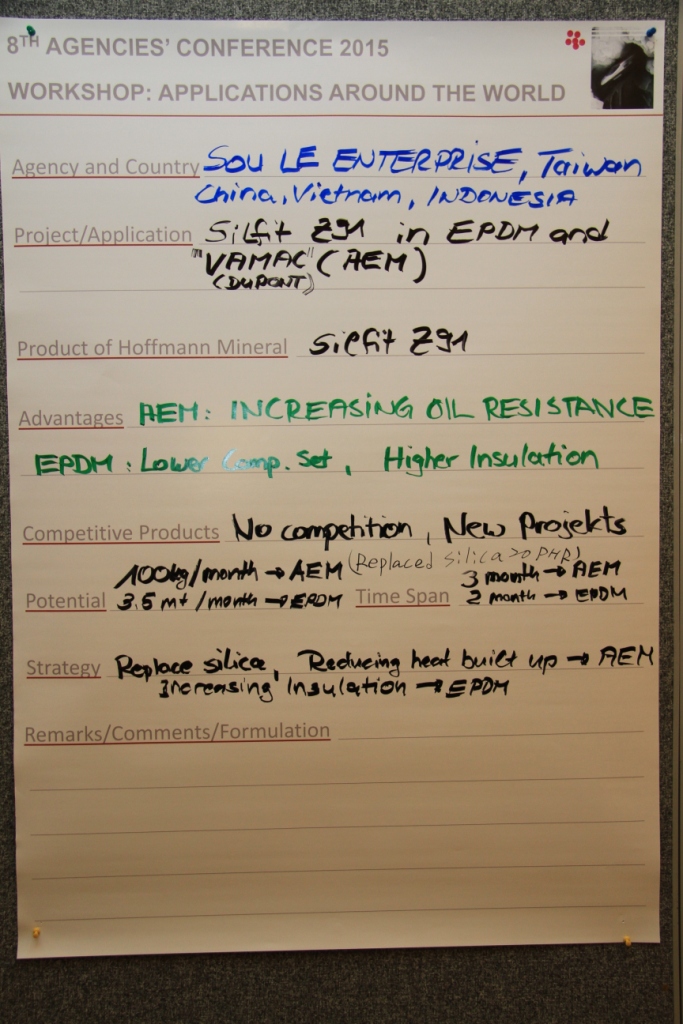 8TH AGENCIES' CONFERENCE 2015
WORKSHOP: APPLICATIONS AROUND THE WORLD
Agency and Country SOU LE ENTERPRISE, Taiwan
China, Vietnam, INDONESIA
Project/Application Silfit Z91 in EPDM and
"VAMAC" (AEM)
(DUPONT)
Product of Hoffmann Mineral Silfit Z91
Advantages AEM: INCREASING OIL RESISTANCE
EPDM: Lower Comp. Set, Higher Insulation
Competitive Products No competition, New Projekts
(Replaced silica 20 PHR)
100kg/month → AEM 3 month → AEM
Potential 3.5 mt/month → EPDM Time Span 2 month → EPDM
Strategy Replace silica, Reducing heat built up → AEM
Increasing Insulation → EPDM
Remarks/Comments/Formulation